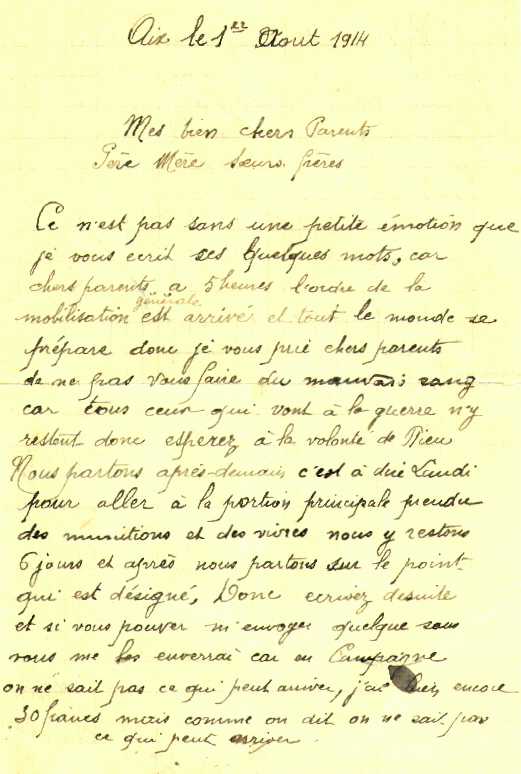 Aix le 1er Aout 1914
Mes bien chers Parents
Père Mère Sœurs frères
Ce n'est pas sans une petite émotion que
je vous ecrit ses quelques mots, car
chers parents a 5 heures l'ordre de la
générale
mobilisation est arrivé et tout le monde se
prépare donc je vous prie chers parents
de ne pas vous faire du mauvais sang
car tous ceux qui vont à la guerre n'y
restent donc esperez à la volonté de Dieu
Nous partons après-demain c'est à dire Lundi
pour aller à la portion principale prendre
des munitions et des vivres nous y restons
6 jours et après nous partons sur le point
qui est désigné, Donc ecrivez desuite
et si vous pouver m'envoyer quelque sous
vous me les enverrai car en Campagne
on ne sait pas ce qui peut arriver, j'ai bien encore
30 francs mais comme on dit on ne sait pas
ce qui peut arriver.